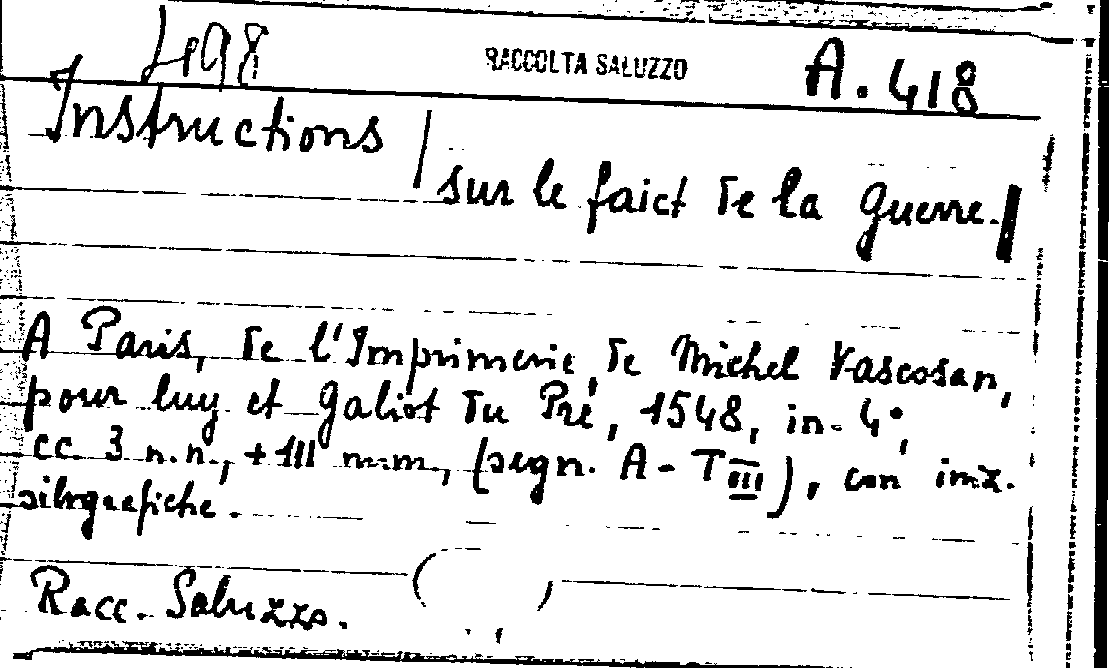 498 RACCOLTA SALUZZO A. 418
Instructions
sur le faict de la guerre.
A Paris, de l'Imprimerie de Michel Vascosan,
pour luy et Galiot du Pré, 1548, in-4°,
cc. 3 n.n., + 111 num., (segn. A-TIII), con inz.
silografiche.
Racc. Saluzzo.